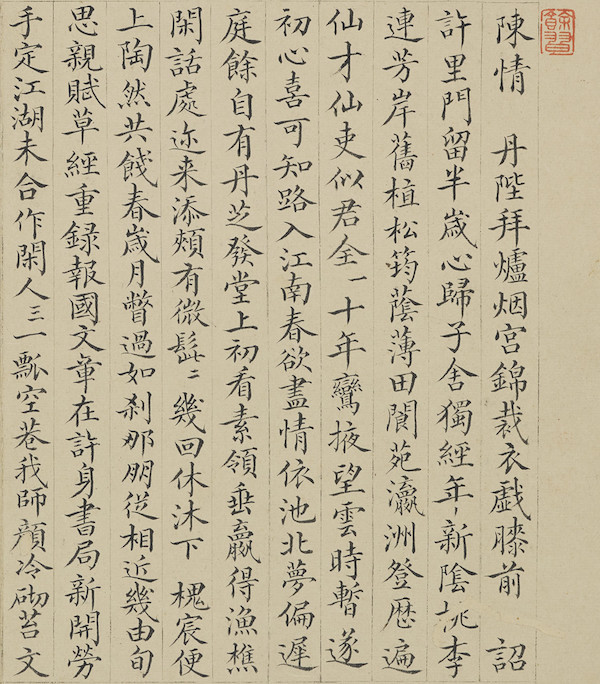 陳情 丹陛拜爐烟宮錦裁衣戲膝前 詔
許里門留半歲心歸子舍獨經年新陰桃李
連芳岸舊植松筠蔭薄田閬苑瀛洲登歷遍
仙才仙吏似君全一十年鸞掖望雲時暫遂
初心喜可知路入江南春欲盡情依池北夢偏遲
庭餘自有丹芝發堂上初看素領垂贏得漁樵
閑話處迩来添頰有微髭二幾回休沐下 槐宸便
上陶然共餞春歲月瞥過如刹那朋從相近幾由旬
思親賦草經重録報國文章在許身書局新開勞
手定江湖未合作閑人三一瓢空巷我師顔冷砌苔文